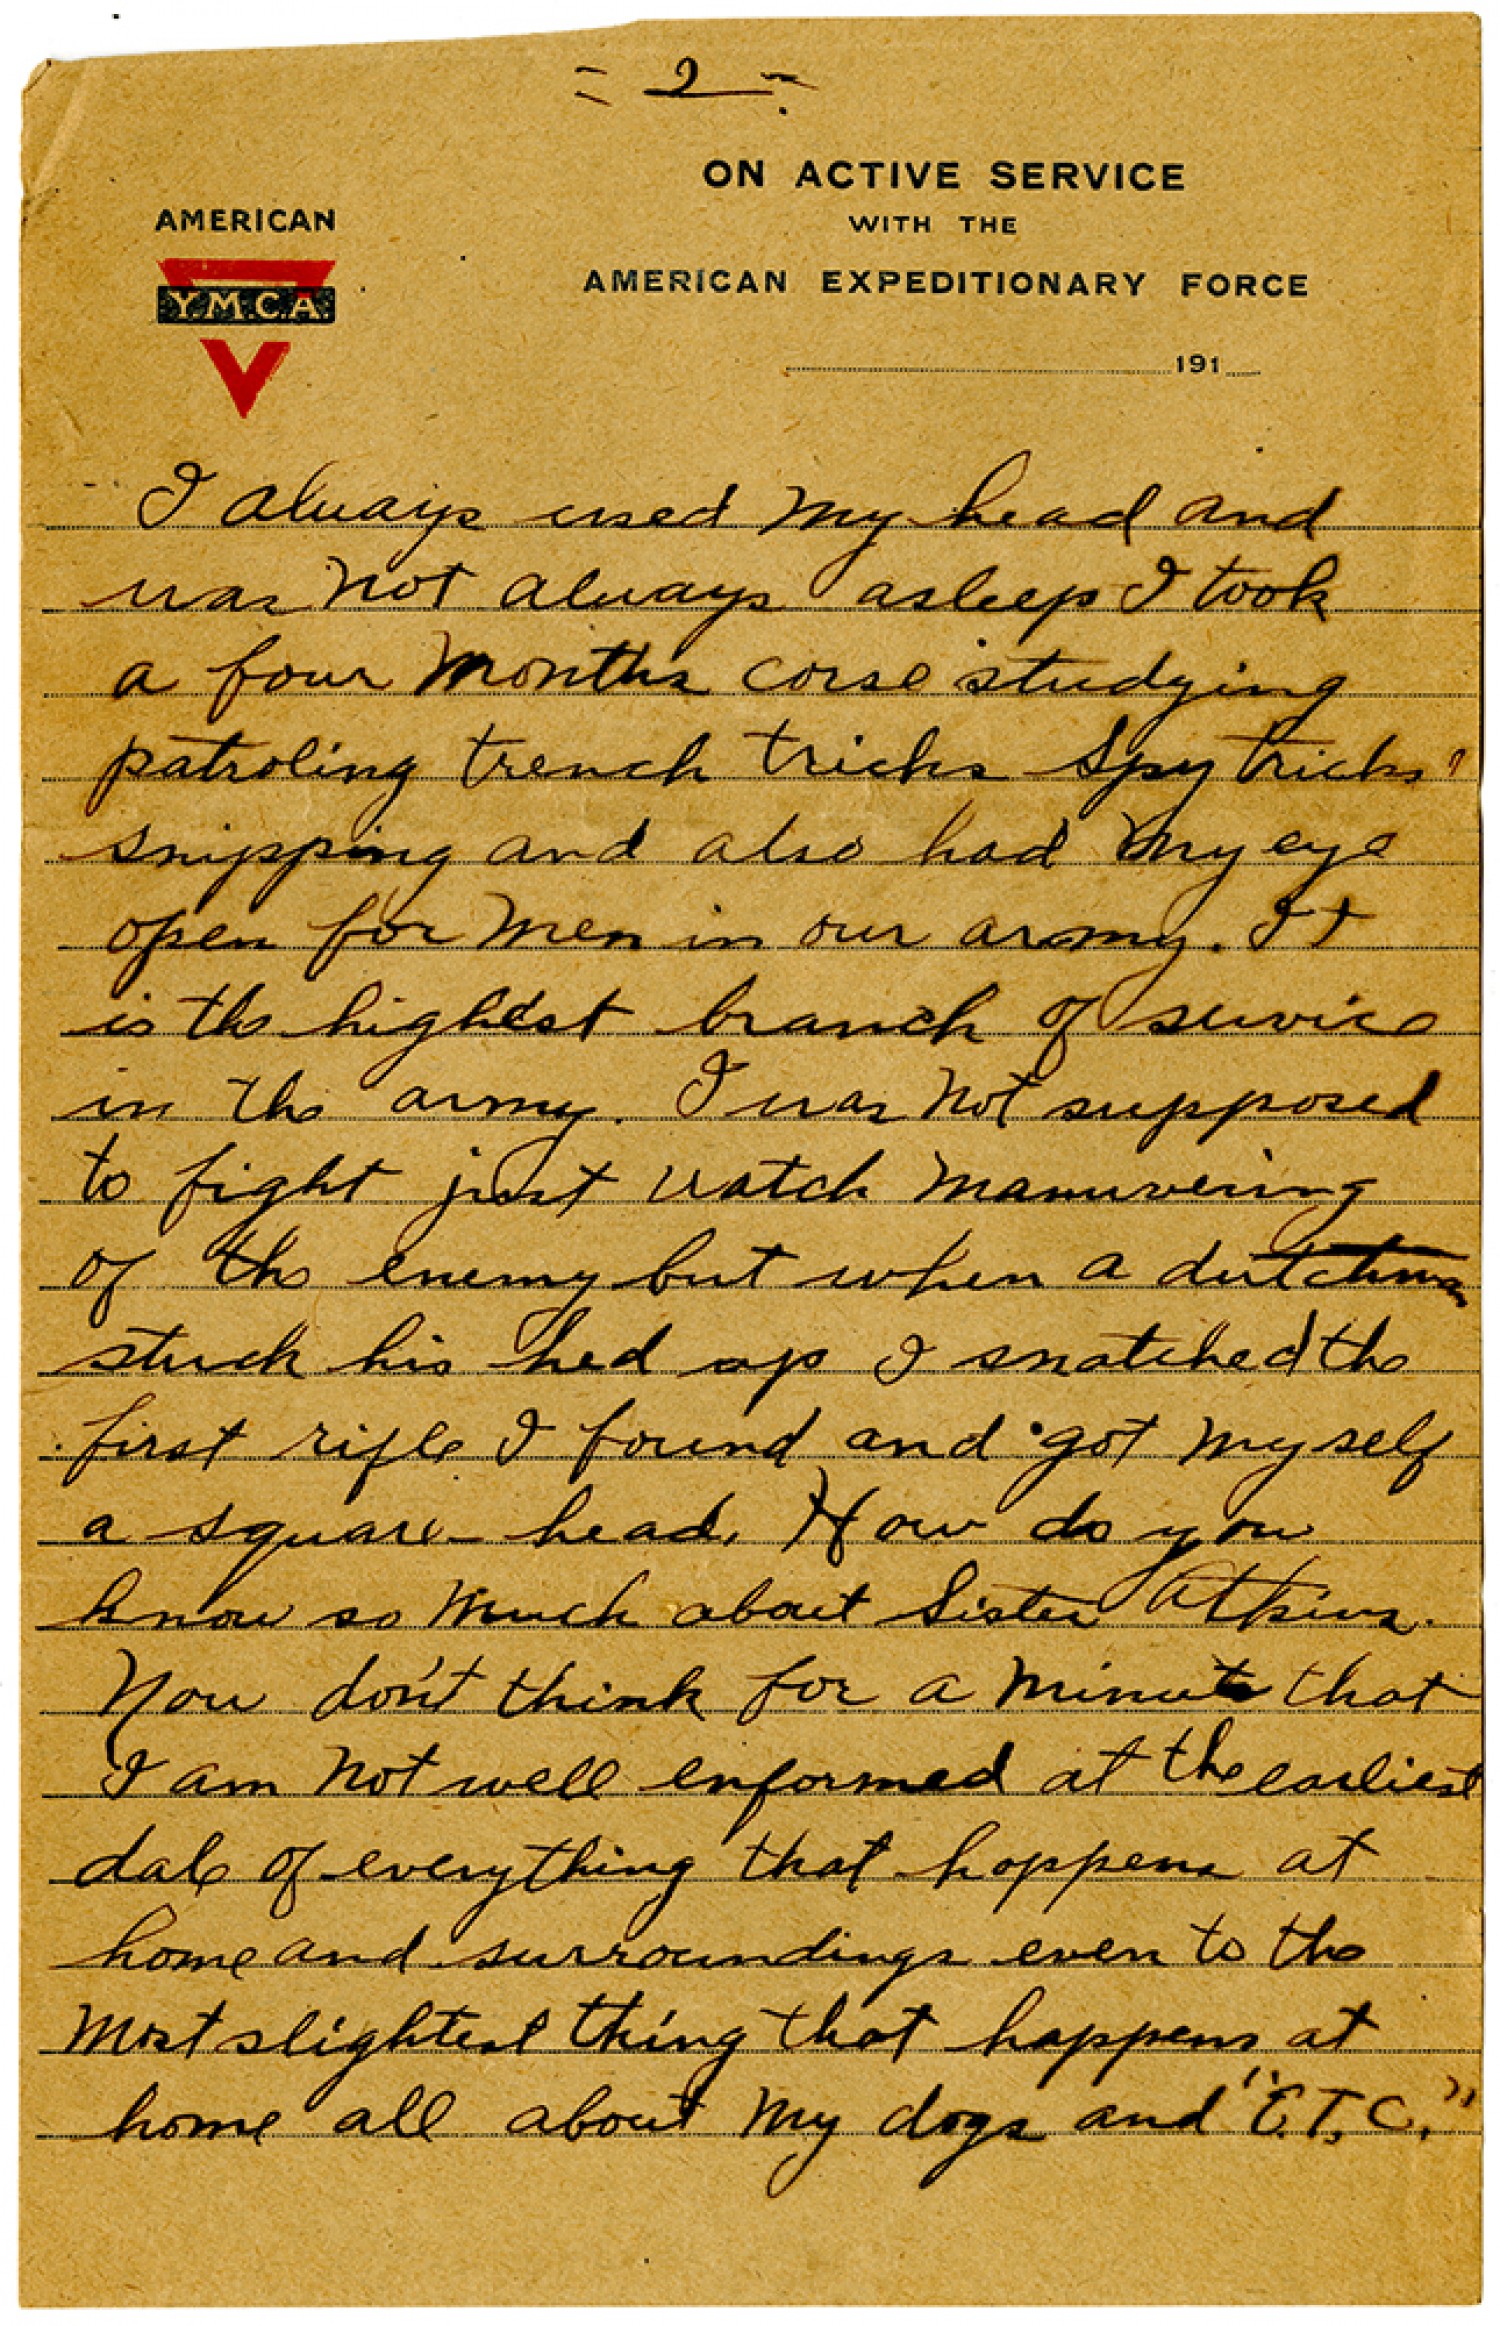 = 2 =
ON ACTIVE SERVICE
WITH THE
AMERICAN EXPEDITIONARY FORCE
AMERICAN
Y.M.C.A.
191
I always used my head and
was not always asleep I took
a four months corse studying
patroling trench tricks Spy tricks
snipping and also had my eye
open for men in our army. It
is the highest branch of service
in the army. I was not supposed
to fight just watch manuvering
of the enemy but when a dutchman
stuck his hed up I snatched the
first rifle I found and got myself
a square-head. How do you
know so much about Sister Atkins.
Now don't think for a minute that
I am not well enformed at the earliest
date of everything that happens at
home and surroundings even to the
most slightest thing that happens at
home all about my dogs and "E.T.C."